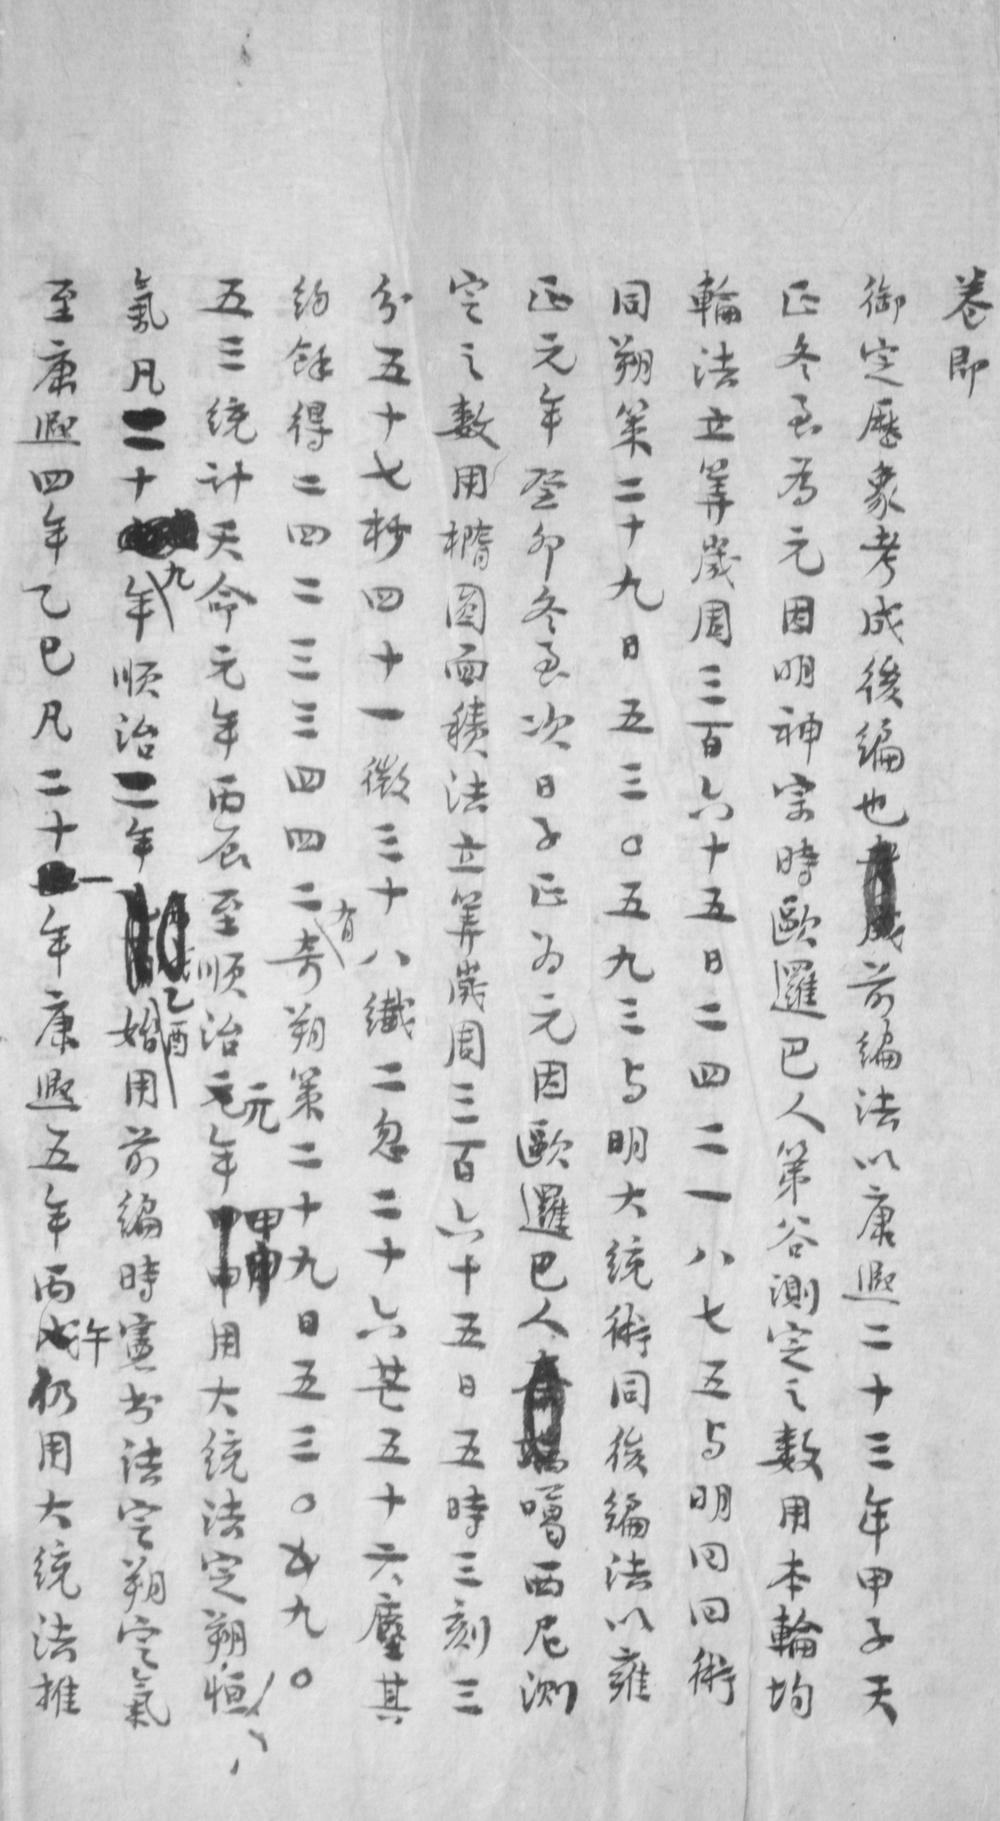 卷即
御定歷象考成後編也前編法以康熙二十三年甲子天
正冬至為元因明神宗時歐邏巴人第谷測定之數用本輪均
輪法立筭歲周三百六十五日二四二一八七五与明回回術
同朔策二十九日五三〇五九三与明大統術同後編法以雍
正元年癸卯冬至次日子正為元因歐邏巴人噶西尼測
定之數用橢圓面積法立筭歲周三百六十五日五時三刻三
分五十七秒四十一微三十八纖二忽二十六芒五十六塵其
約餘得二四二三三四四二有奇朔策二十九日五三〇五九〇
五三統計天命元年丙辰至順治元年甲申用大統法定朔恒
氣凡二十九年順治二年乙酉始用前編時憲書法定朔定氣
至康熙四年乙巳凡二十一年康熙五年丙午仍用大統法推